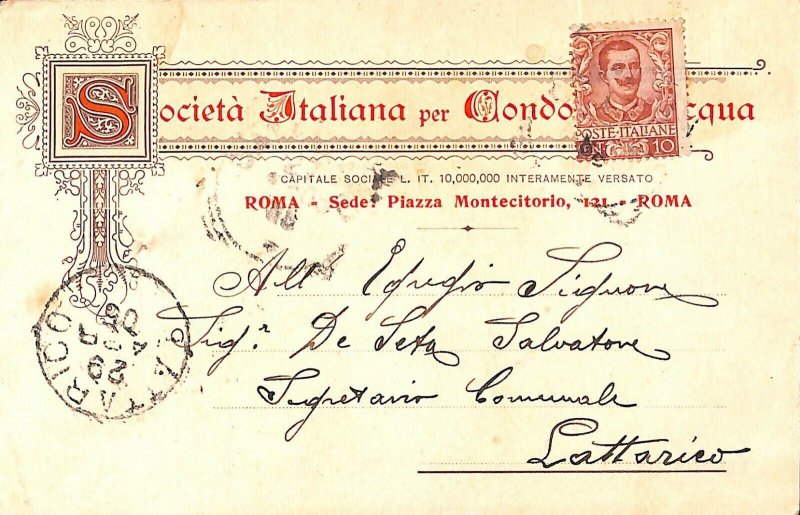 Società Italiana per Condo acqua
POSTE·ITALIANE
10
CAPITALE SOCIALE L. IT. 10,000,000 INTERAMENTE VERSATO
ROMA - Sede: Piazza Montecitorio, 121 - ROMA
All' Egregio Signore
Sig.r De Seta Salvatore
Segretario Comunale
Lattarico
LATTARICO
29